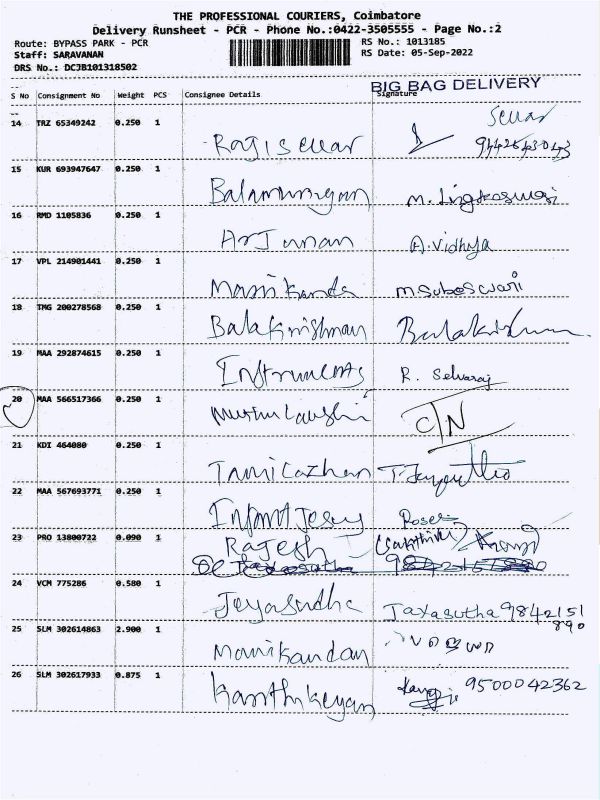 THE PROFESSIONAL COURIERS, Coimbatore
Delivery Runsheet - PCR - Phone No.:0422-3505555 - Page No.:2
Route: BYPASS PARK - PCR
RS No.: 1013185
Staff: SARAVANAN
RS Date: 05-Sep-2022
DRS No.: DCJB101318502
BIG BAG DELIVERY
S No Consignment No Weight PCS Consignee Details Signature
14 TRZ 65349242 0.250 1
15 KUR 693947647 0.250 1 Balamurugan
16 RMD 1105836 0.250 1 Arjunan A. Vidhya
17 VPL 214901441 0.250 1 Manikanda
18 TMG 200278568 0.250 1 Balakrishnan Balakrishnan
19 MAA 292874615 0.250 1 Instruments R. Selvaraj
20 MAA 566517366 0.250 1 C/N
21 KDI 464080 0.250 1
22 MAA 567693771 0.250 1 Infant Jesus
23 PRO 13800722 0.090 1 Rajesh
24 VCM 775286 0.580 1 Jeyasudha Jaxasutha 9842151
890
25 SLM 302614863 2.900 1 Manikandan
26 SLM 302617933 0.875 1 Karthikeyan 9500042362